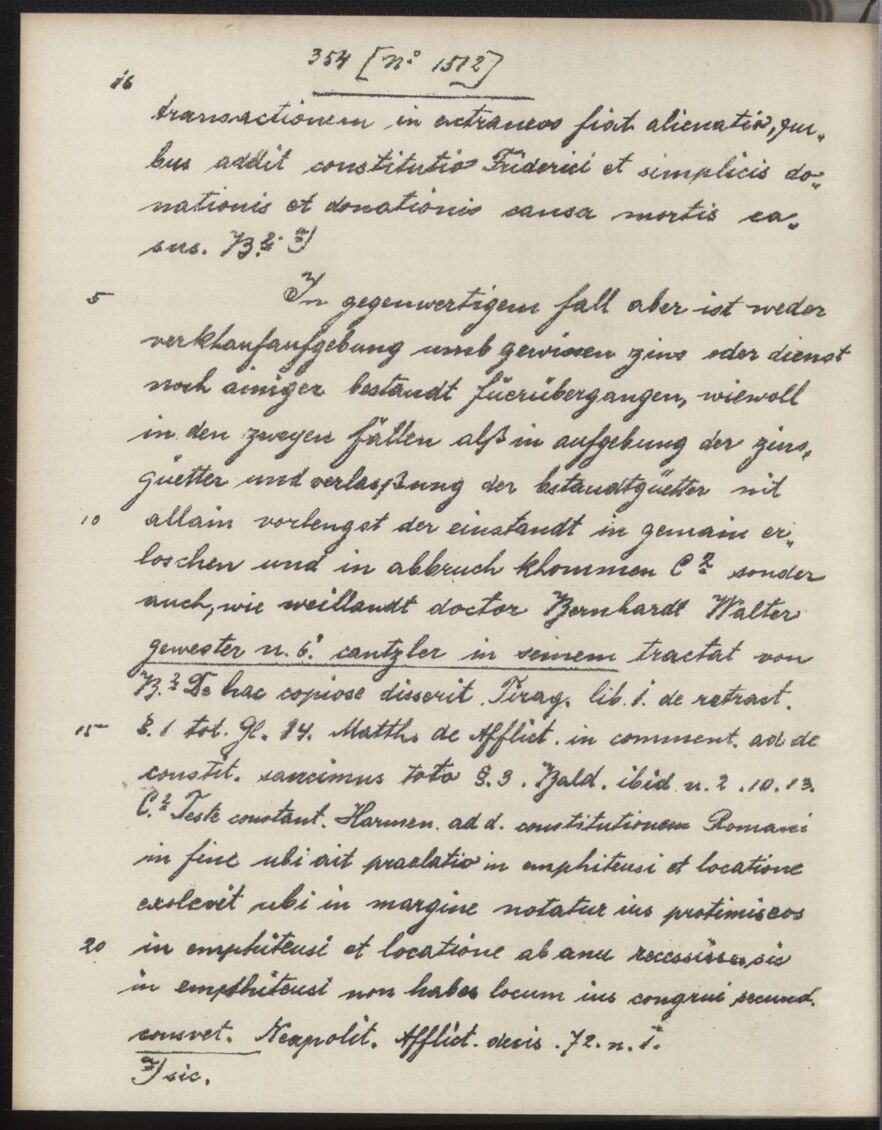 354 [Nº 1512]
16
transactionem in extraneos fiat alienatio, qui„
bus addit constitutio Friderici et simplicis do„
nationis et donationis causa mortis ca„
sus. B.2. a)
5 In gegenwertigem fall aber ist weder
verkhaufaufgebung umb gewissen zins oder dienst
noch ainiger bestandt füerübergangen, wiewoll
in den zweyen fällen alß in aufgebung der zins„
güetter und verlaßung der bestandtgüetter nit
10 allain vorlengst der einstandt in gemain er„
loschen und in abbruch khommen C 2 sonder
auch, wie weillandt doctor Bernhardt Walter
gewester n. ö. cantzler in seinem tractat von
B.2 De hac copiose disserit Tirag. lib. 1. de retract.
15 §. 1 tot. Gl. 14. Matth. de Afflict. in comment. ad de
constit. sancimus toto §. 3. Bald. ibid n. 2 .10.13.
C.2 Teste constant. Harmen. ad d. constitutionem Romani
in fine ubi ait praelatio in emphiteusi et locatione
exolevit ubi in margine notatur ius protimiseos
20 in emphiteusi et locatione ab anu recessisse sic
in emphiteusi non habes locum ius congrui secund.
consvet. Neapolit. Afflict. decis. 72. n. 1.
a) sic.